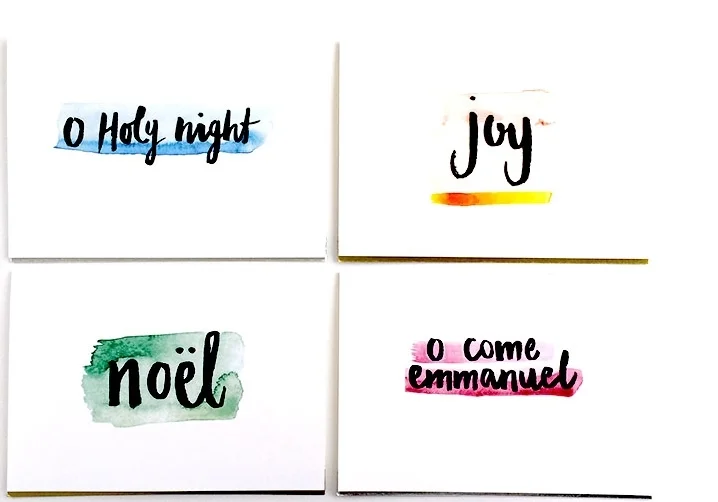 O Holy night
joy
noël
o come
emmanuel